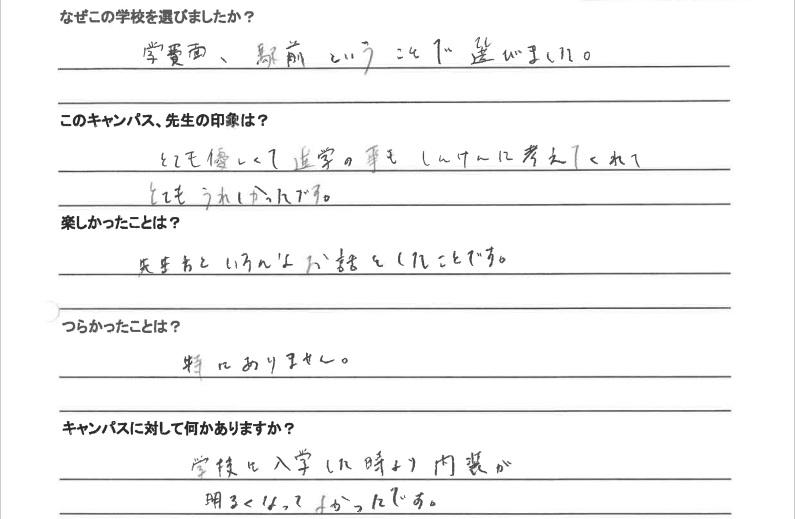 なぜこの学校を選びましたか？
学費面、駅前ということで選びました。
このキャンパス、先生の印象は？
とても優しくて進学の事もしんけんに考えてくれて
とてもうれしかったです。
楽しかったことは？
先生方といろんなお話をしたことです。
つらかったことは？
特にありません。
キャンパスに対して何かありますか？
学校に入学した時より内装が
明るくなってよかったです。